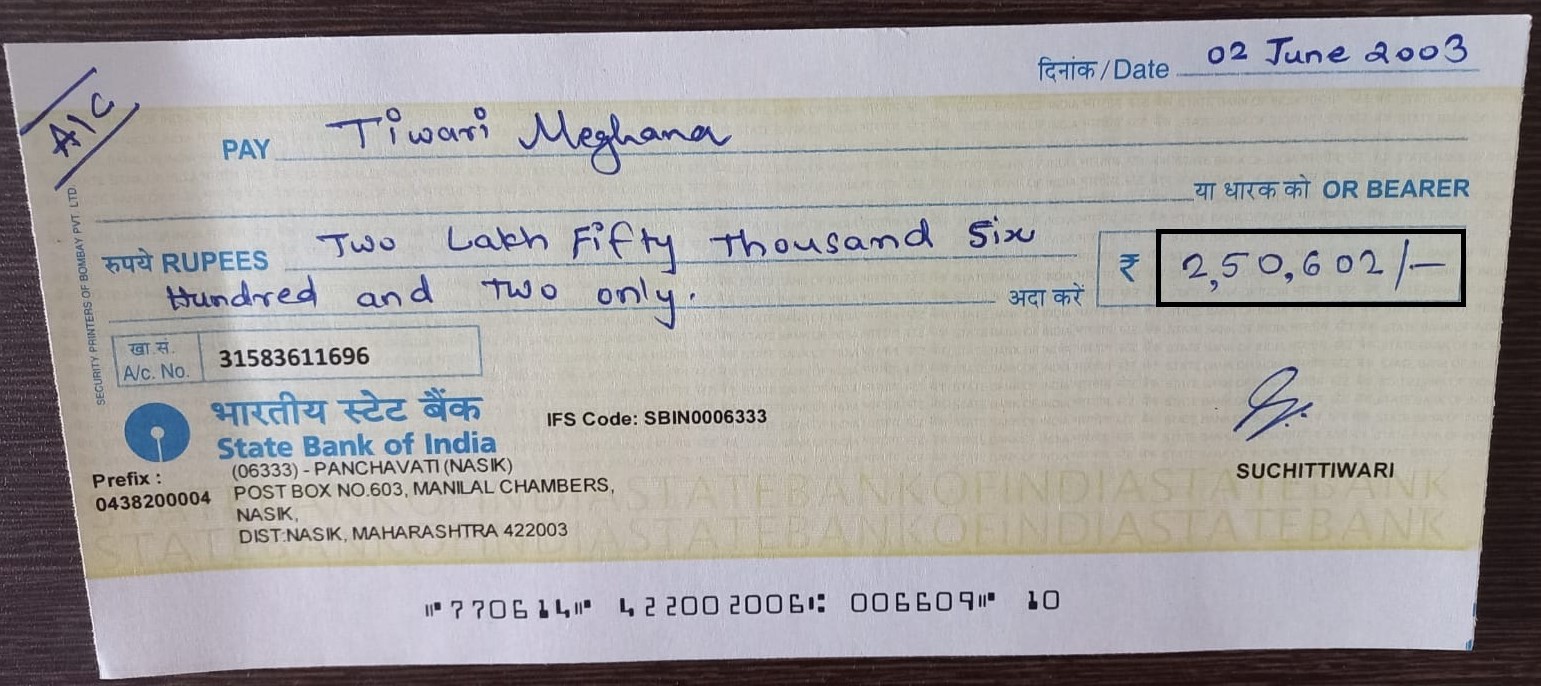 दिनांक/Date 02 June 2003
A/C
PAY Tiwari Meghana
या धारक को OR BEARER
रुपये RUPEES Two Lakh Fifty Thousand Six
Hundred and Two only. अदा करें ₹ 2,50,602/-
खा.सं.
A/c. No. 31583611696
SECURITY PRINTERS OF BOMBAY PVT. LTD.
भारतीय स्टेट बैंक
State Bank of India
IFS Code: SBIN0006333
Prefix :
0438200004
(06333) - PANCHAVATI (NASIK)
POST BOX NO.603, MANILAL CHAMBERS,
NASIK,
DIST:NASIK, MAHARASHTRA 422003
SUCHITTIWARI
STATEBANKOFINDIASTATEBANK
STATEBANKOFINDIASTATEBANK
⑈770614⑈ 422002006⑆ 006609⑈ 10